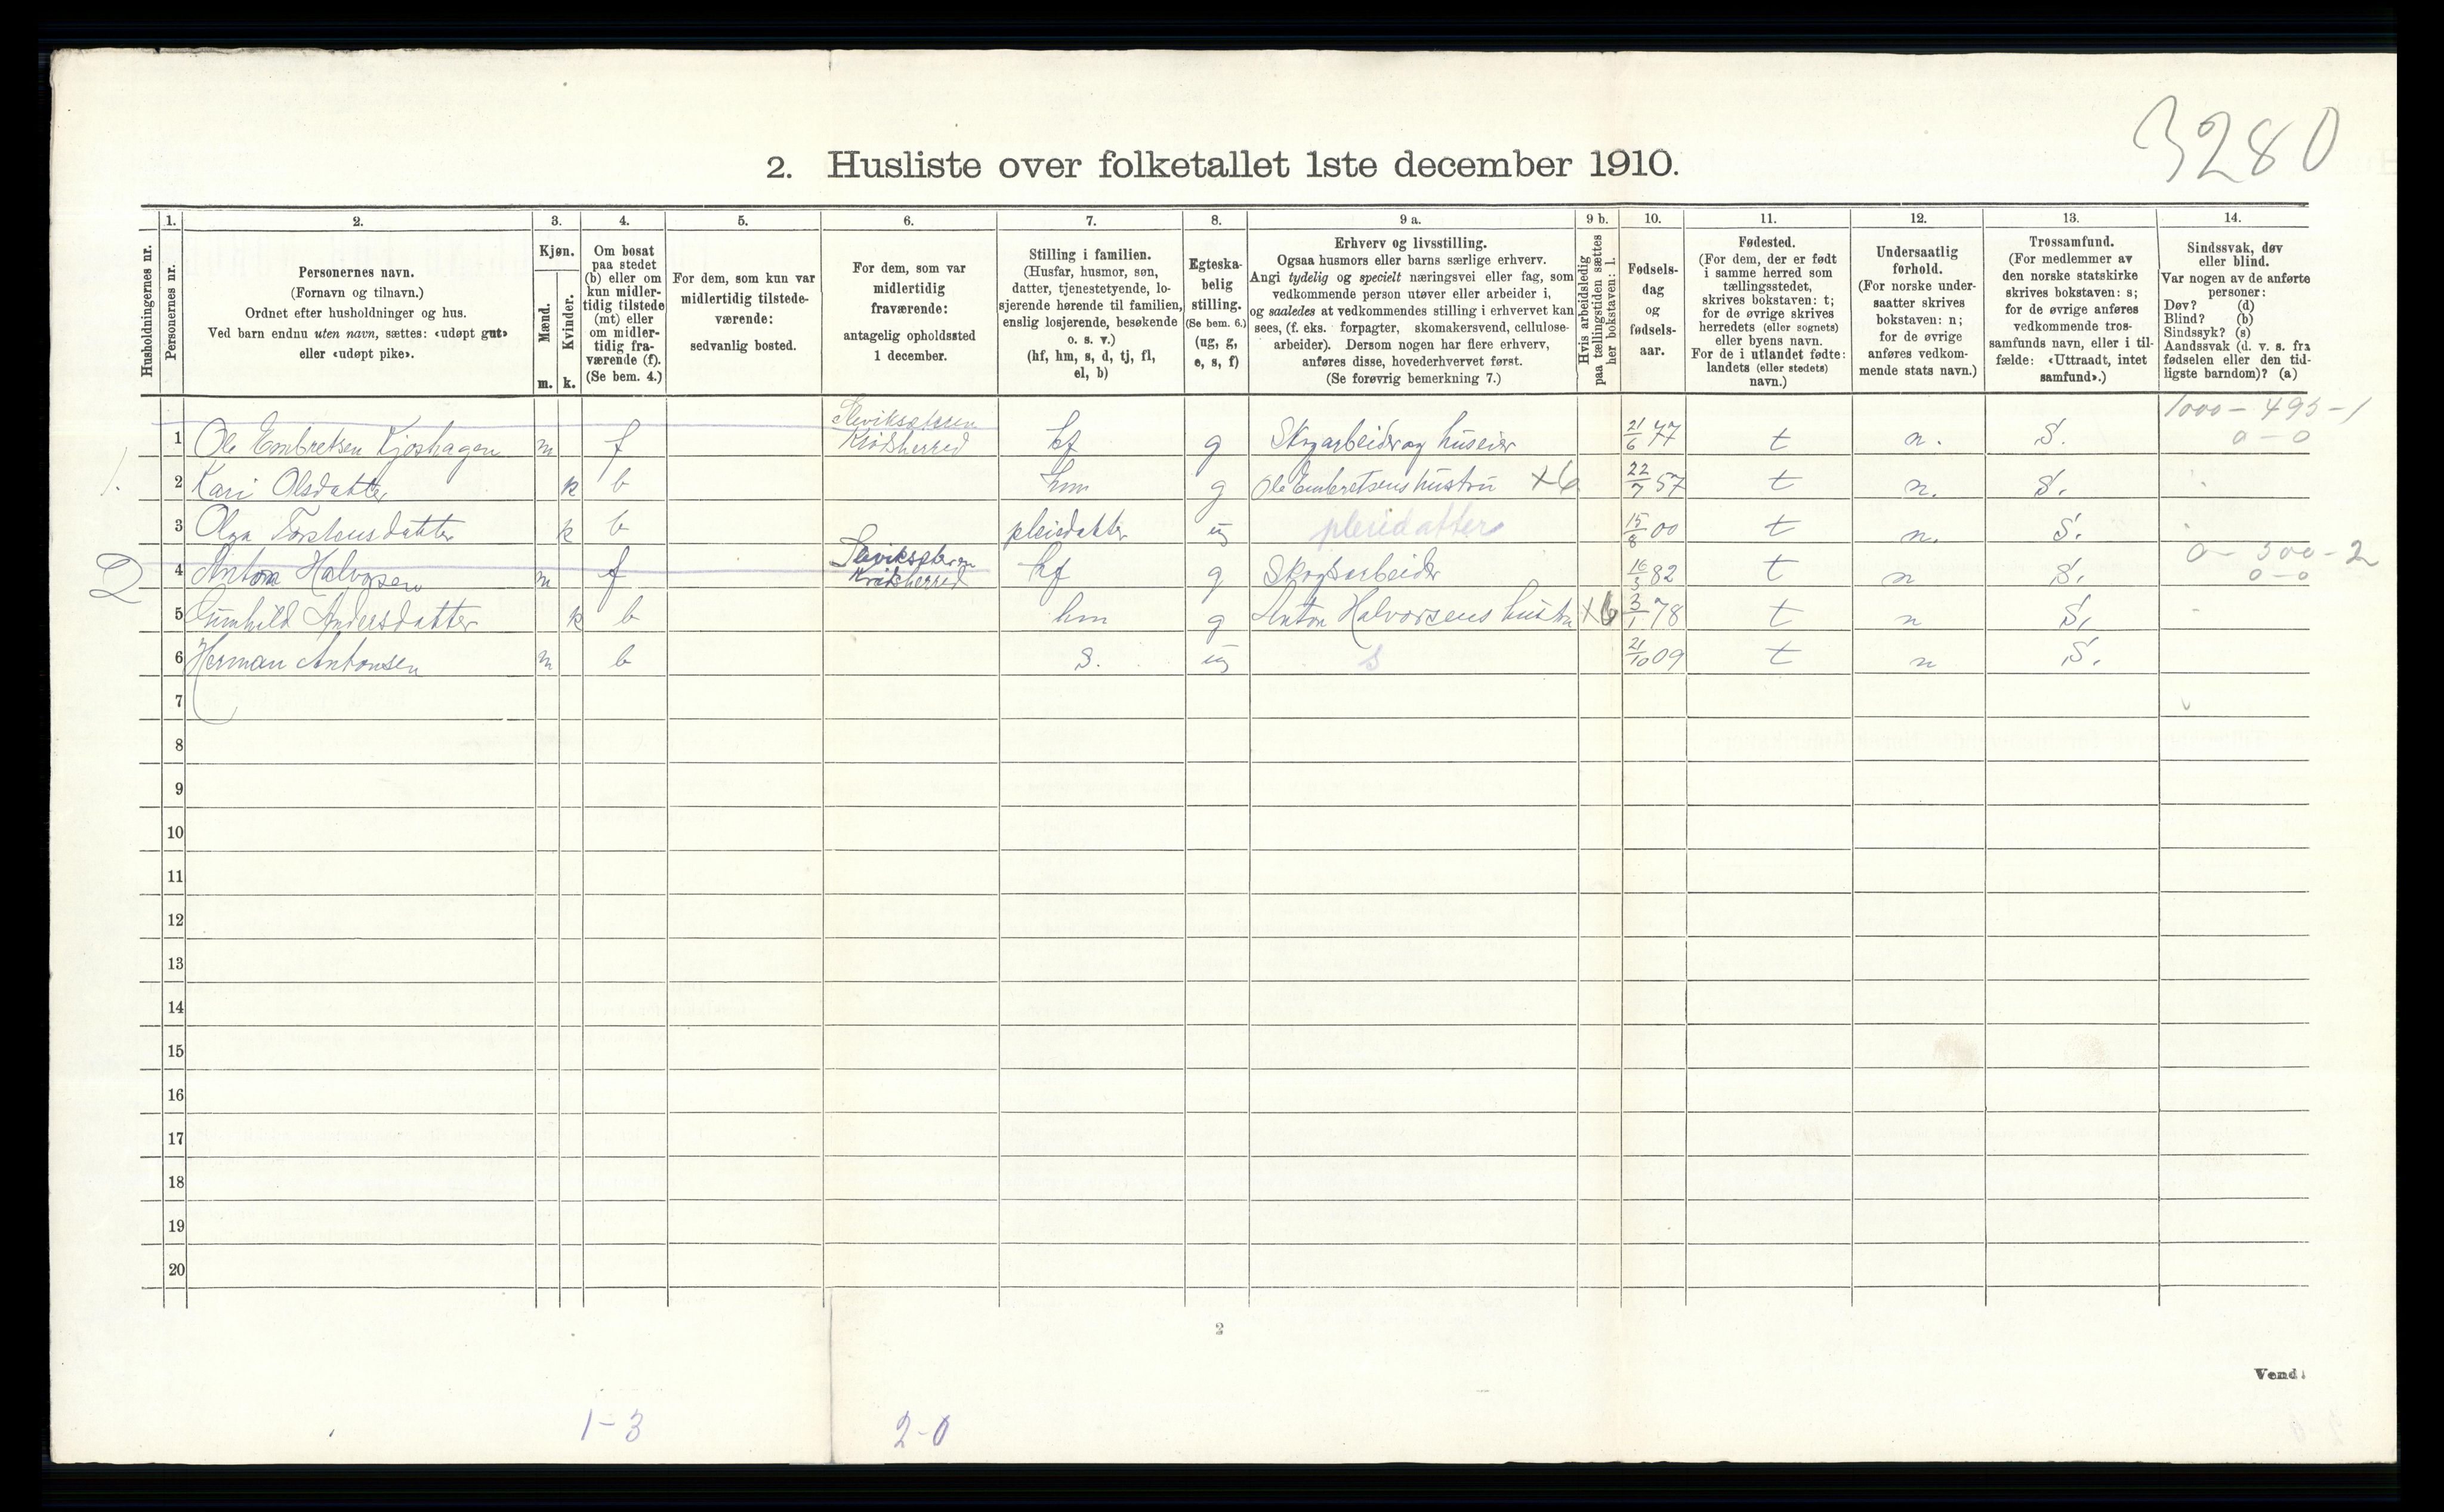 3280
2. Husliste over folketallet 1ste december 1910.
Husholdningernes nr.
1.
Personernes nr.
2.
Personernes navn.
(Fornavn og tilnavn.)
Ordnet efter husholdninger og hus.
Ved barn endnu uten navn, sættes: «udøpt gut»
eller «udøpt pike».
3.
Kjøn.
Mænd.
m.
Kvinder.
k.
4.
Om bosat
paa stedet
(b) eller om
kun midler-
tidig tilstede
(mt) eller
om midler-
tidig fra-
værende (f).
(Se bem. 4.)
5.
For dem, som kun var
midlertidig tilstede-
værende:
sedvanlig bosted.
6.
For dem, som var
midlertidig
fraværende:
antagelig opholdssted
1 december.
7.
Stilling i familien.
(Husfar, husmor, søn,
datter, tjenestetyende, lo-
sjerende hørende til familien,
enslig losjerende, besøkende
o. s. v.)
(hf, hm, s, d, tj, fl,
el, b)
8.
Egteska-
belig
stilling.
(Se bem. 6.)
(ug, g,
e, s, f)
9 a.
Erhverv og livsstilling.
Ogsaa husmors eller barns særlige erhverv.
Angi tydelig og specielt næringsvei eller fag, som
vedkommende person utøver eller arbeider i,
og saaledes at vedkommendes stilling i erhvervet kan
sees, (f. eks. forpagter, skomakersvend, cellulose-
arbeider). Dersom nogen har flere erhverv,
anføres disse, hovederhvervet først.
(Se forøvrig bemerkning 7.)
9 b.
Hvis arbeidsledig
paa tællingstiden sættes
her bokstaven: l.
10.
Fødsels-
dag
og
fødsels-
aar.
11.
Fødested.
(For dem, der er født
i samme herred som
tællingsstedet,
skrives bokstaven: t;
for de øvrige skrives
herredets (eller sognets)
eller byens navn.
For de i utlandet fødte:
landets (eller stedets)
navn.)
12.
Undersaatlig
forhold.
(For norske under-
saatter skrives
bokstaven: n;
for de øvrige
anføres vedkom-
mende stats navn.)
13.
Trossamfund.
(For medlemmer av
den norske statskirke
skrives bokstaven: s;
for de øvrige anføres
vedkommende tros-
samfunds navn, eller i til-
fælde: «Uttraadt, intet
samfund».)
14.
Sindssvak, døv
eller blind.
Var nogen av de anførte
personer:
Døv? (d)
Blind? (b)
Sindssyk? (s)
Aandssvak (d. v. s. fra
fødselen eller den tid-
ligste barndom)? (a)
1000 - 495 - 1
1. 1 Ole Embretsen Kjøshagen m f Krødsherred hf g Skogarbeider og huseier 21/6 77 t n. S. 0-0
2 Kari Olsdatter k b hm g Ole Embretsens hustru X6 22/7 57 t n. S.
3 Olga Torstensdatter k b pleiedatter ug pleiedatter 15/8 00 t n. S.
0 - 500 - 2
2 4 Anton Halvorsen m f Krødsherred hf g Skogsarbeider 82 t n S. 0-0
5 Gunhild Andersdatter k b hm g Anton Halvorsens hustru X6 3/1 78 t n S.
6 Herman Antonsen m b s. ug s 21/10 09 t n S.
7
8
9
10
11
12
13
14
15
16
17
18
19
20
2
Vend!
1-3 2-0